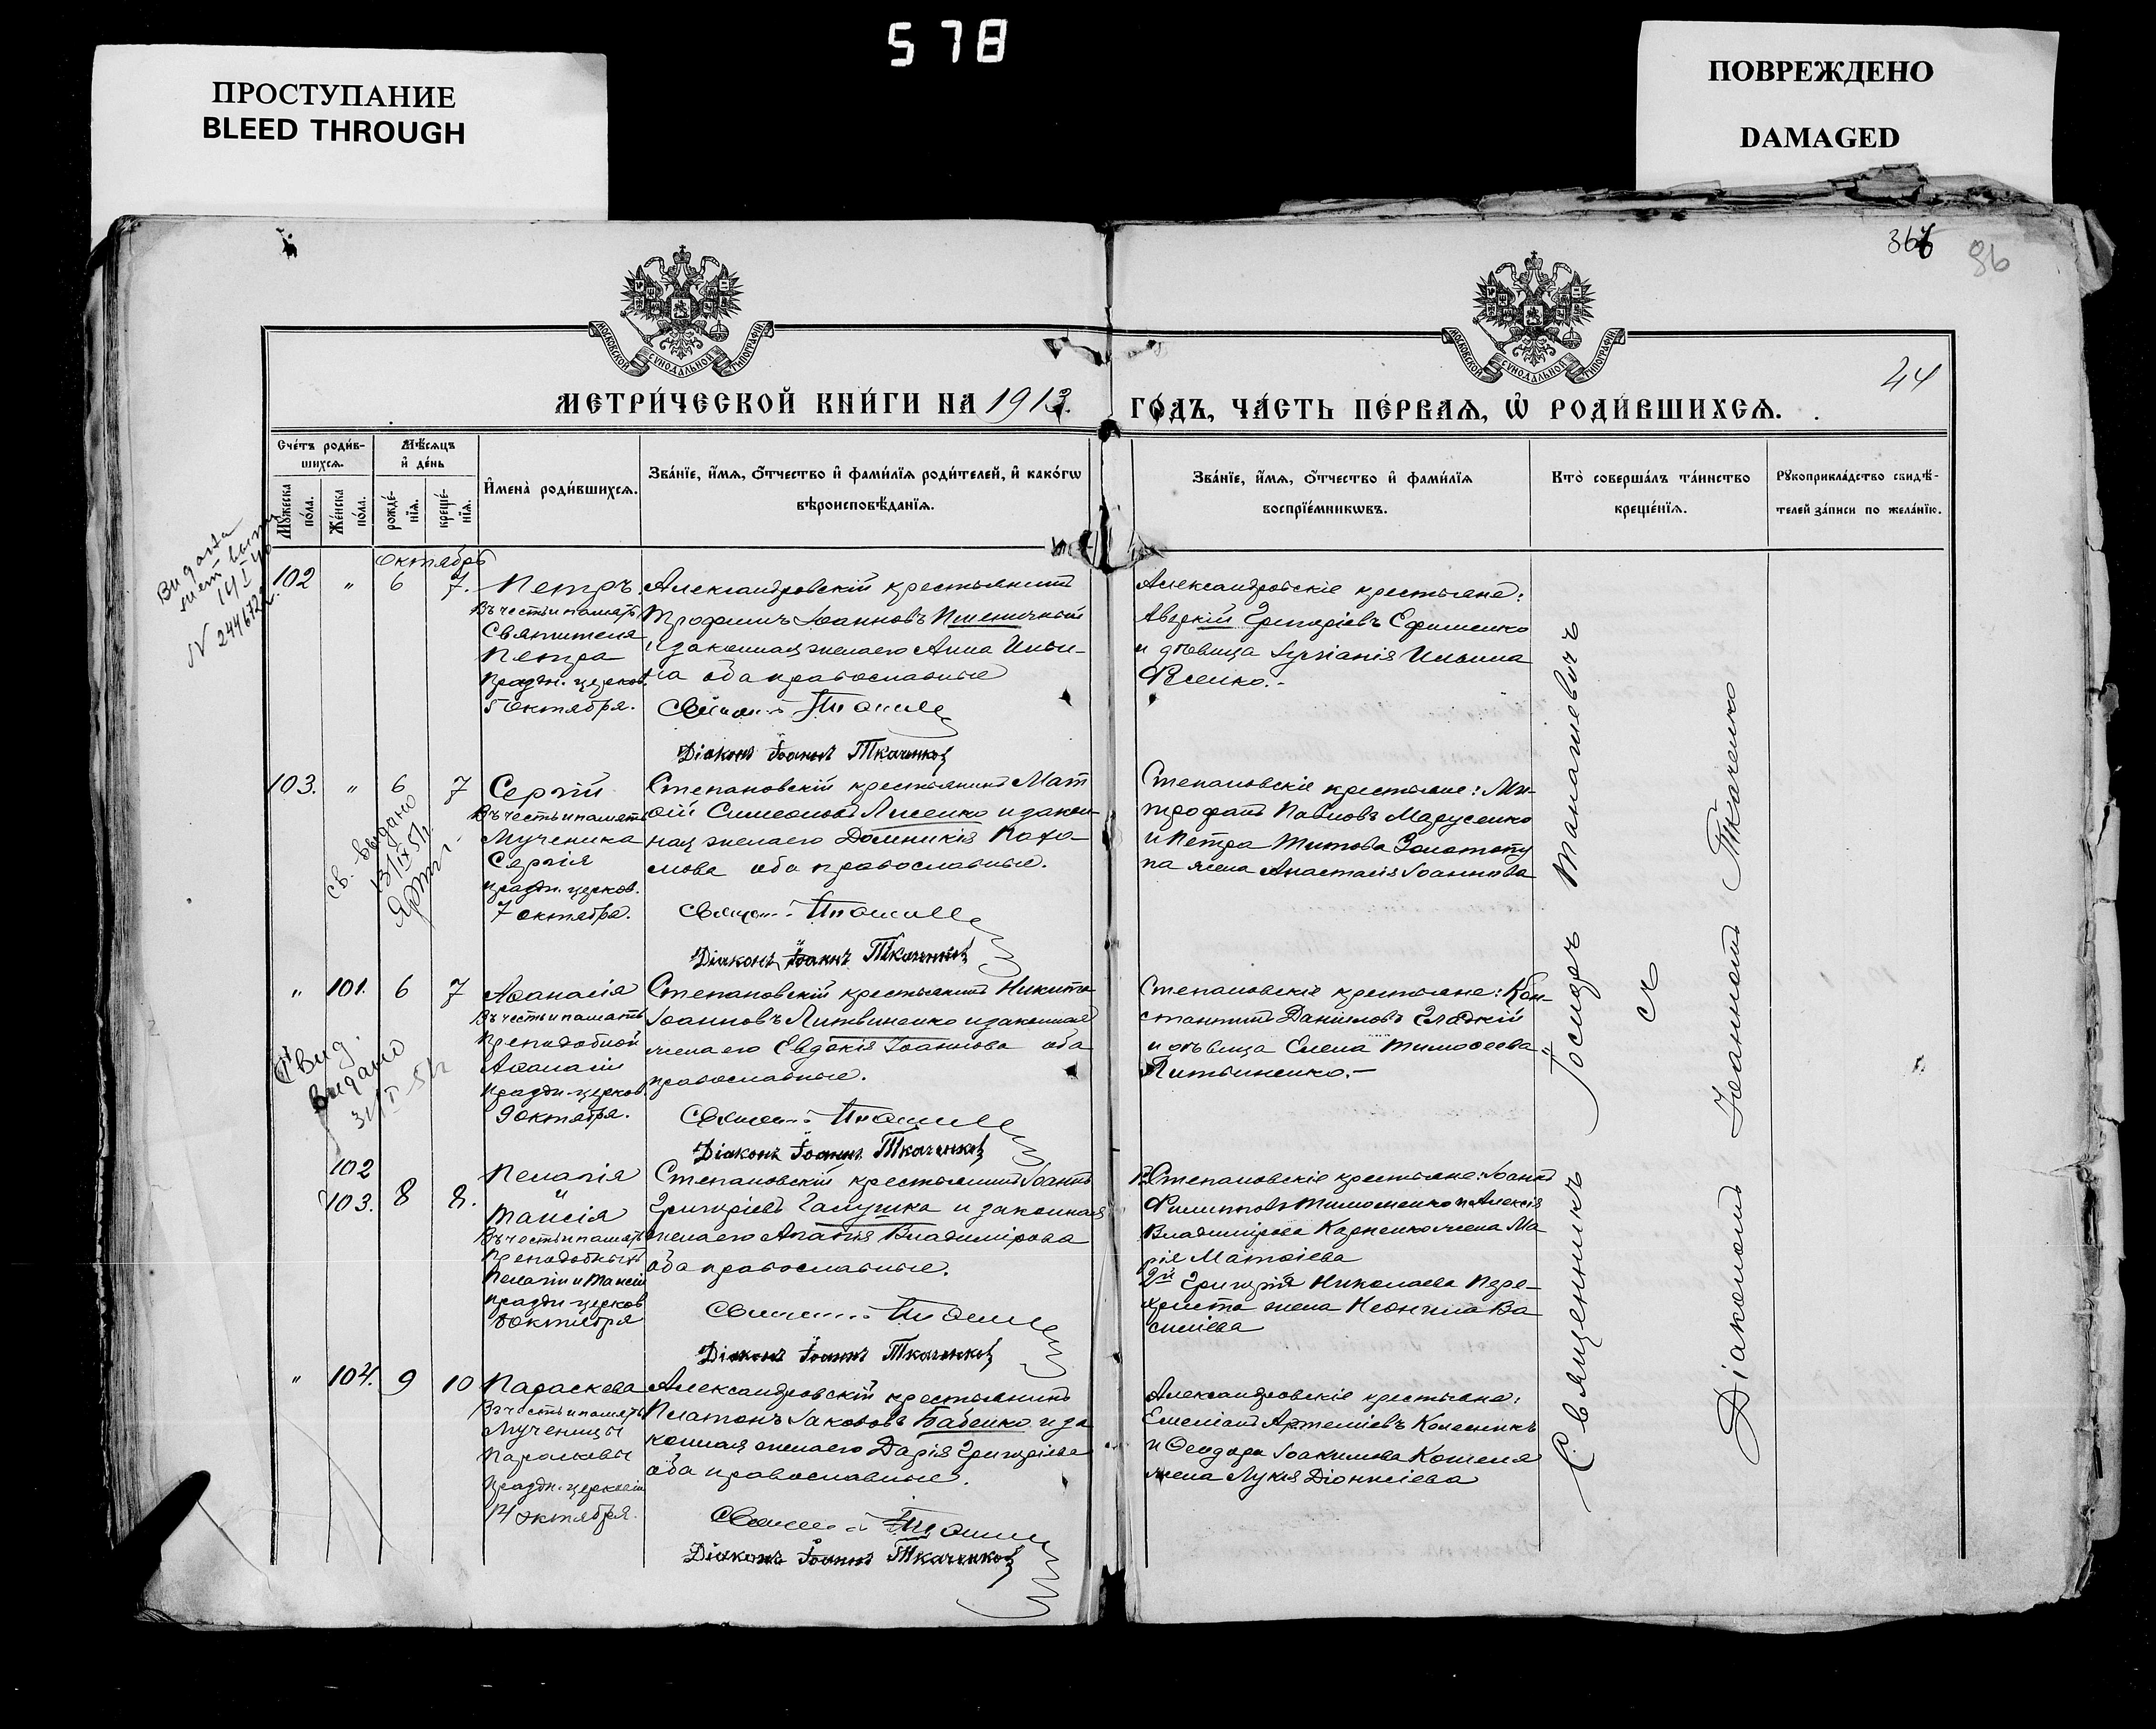 578
ПРОСТУПАНИЕ
BLEED THROUGH
ПОВРЕЖДЕНО
DAMAGED
366
96
24
МОСКОВСКОЙ СѴНОДАЛЬНОЙ ТИПОГРАФІИ
МОСКОВСКОЙ СѴНОДАЛЬНОЙ ТИПОГРАФІИ
МЕТРИ́ЧЕСКОЙ КНИ́ГИ НА 1913.
ГО́ДЪ, ЧА́СТЬ ПЕ́РВАЯ, Ѡ҆ РОДИ́ВШИХСЯ.
Сче́тъ роди́в-
шихся.
Мѣ́сяцъ
и҆ де́нь
Мꙋ́жеска
по́ла.
Же́нска
по́ла.
рожде́-
нїя.
креще́-
нїя.
И҆мена̀ роди́вшихся.
Зва́нїе, и҆́мя, ѻ҆́тчество и҆ фами́лїя роди́телей, и҆ како́гѡ
вѣроисповѣ́данїя.
Зва́нїе, и҆́мя, ѻ҆́тчество и҆ фами́лїя
воспрїе́мникѡвъ.
Кто̀ соверша́лъ та́инство
креще́нїя.
Рꙋкоприкла́дство свидѣ́-
телей за́писи по жела́нїю.
октябрь
102 " 6 7. Петръ.
Въ честь и память
Святителя
Петра
праздн. церков.
5 октября.
Александровскій крестьянинъ
Трофимъ Іоанновъ Пшеничный
и законная жена его Анна Ильи-
на оба православные
Діаконъ Іоаннъ Ткаченко
Александровскіе крестьяне:
Григоріевъ Ефименко
и дѣвица Ильина
103. " 6 7 Сергій
Въ честь и память
Мученика
Сергія
праздн. церков.
7 октября.
Степановскій крестьянинъ Мат
ѳій Симеоновъ Лисенко и закон-
ная жена его Домникія Пахо-
мова оба православные.
Діаконъ Іоаннъ Ткаченко
Степановскіе крестьяне: Ми-
трофанъ Павловъ Марусенко
и Петра Титова Золотопу
па жена Анастасія Іоаннова
Св. выдано
" 101. 6 7 Аѳанасія
Въ честь и память
Преподобной
Аѳанасіи
праздн. церков.
9 октября.
Степановскій крестьянинъ Никита
Іоанновъ Литвиненко и законная
жена его Евдокія Іоаннова оба
православные.
Діаконъ Іоаннъ Ткаченко
Степановскіе крестьяне: Кон-
стантинъ Даніиловъ Гладкій
и дѣвица Елена Тимоѳеева
Литвиненко.—
102
103. 8 8.
Пелагія
и
Таисія
Въ честь и память
Преподобныхъ
Пелагіи и Таисіи
праздн. церков
8 октября
Степановскій крестьянинъ Іоаннъ
Григоріевъ Галушка и законная
жена его Агапія Владимірова
оба православные.
Діаконъ Іоаннъ Ткаченко
Степановскіе крестьяне: Іоаннъ
Филипповъ Тимошенко и Алексія
Владимірова Карпенко жена Ма
рія Матѳіева
2й Григорія Николаева Пере-
христа жена Неонила Ва
силіева
" 104. 9 10 Параскева
Въ честь и память
Мученицы
Параскевы
праздн. церковію
14 октября.
Александровскій крестьянинъ
Платонъ Іакововъ Бабенко и за
конная жена его Дарія Григоріева
оба православные.
Діаконъ Іоаннъ Ткаченко
Александровскіе крестьяне:
Емеліанъ Артеміевъ Колесникъ
и Ѳеодора Іоакимова Кошеля
жена Лукія Діонисіева
Священникъ Іосифъ Танатіевичъ
съ
Діакономъ Іоанномъ Ткаченко